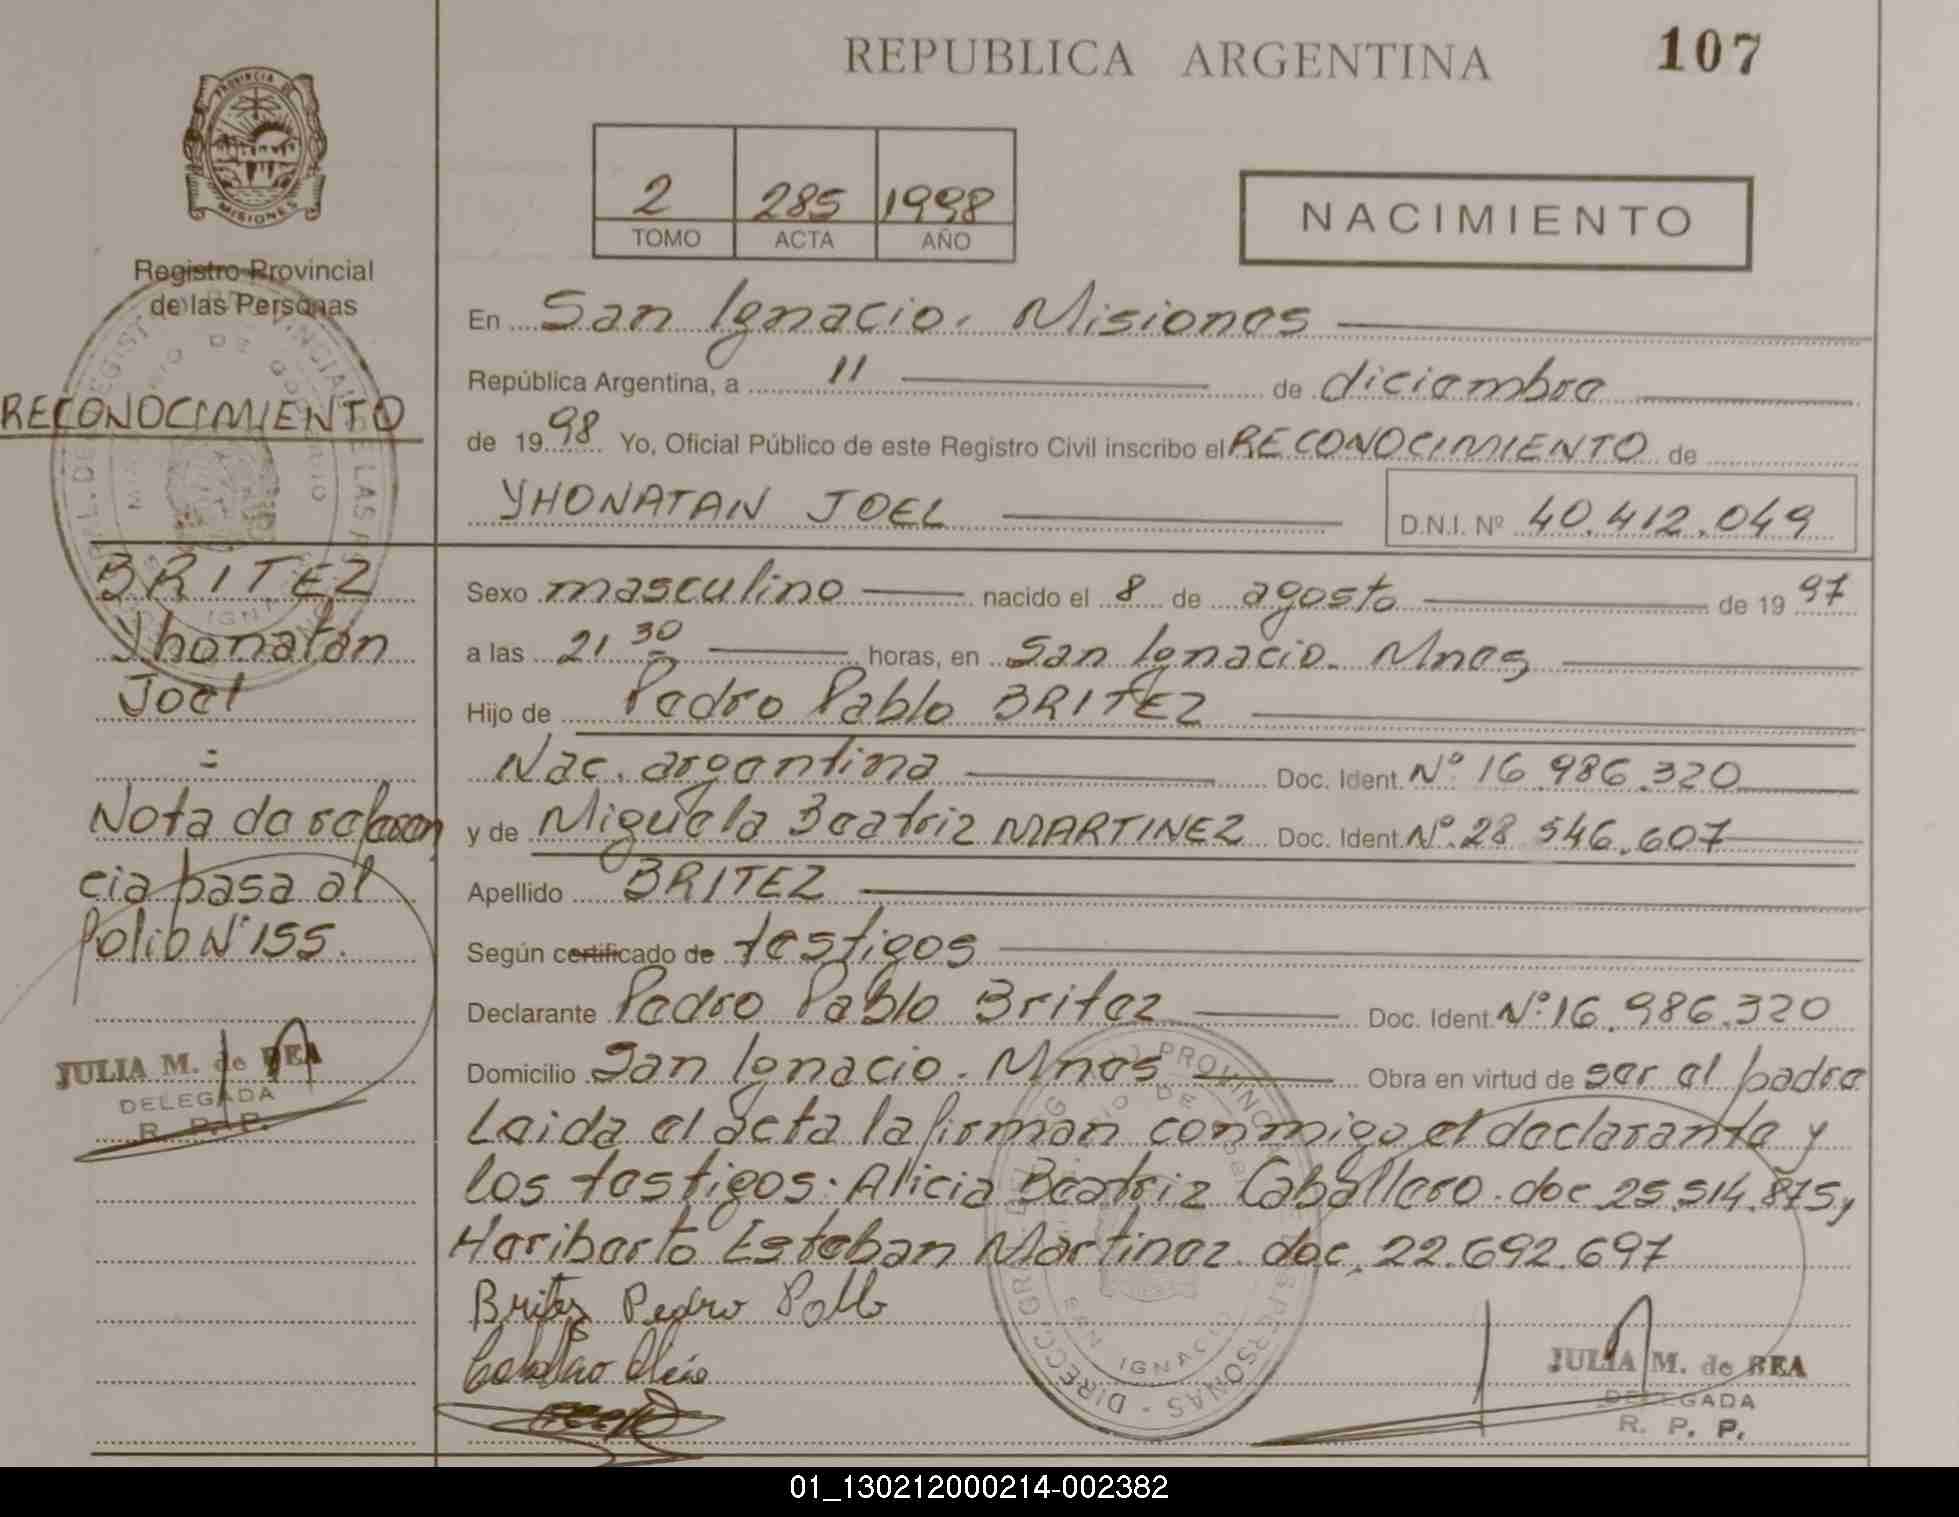 REPUBLICA ARGENTINA
107
PROVINCIA DE
MISIONES
Registro Provincial
de las Personas
2 285 1998
TOMO ACTA AÑO
NACIMIENTO
En San Ignacio. Misiones
República Argentina, a 11 de diciembre
RECONOCIMIENTO
de 1998 Yo, Oficial Público de este Registro Civil inscribo el RECONOCIMIENTO de
YHONATAN JOEL D.N.I. Nº 40.412.049
BRITEZ
Yhonatan
Joel
=
Sexo masculino nacido el 8 de agosto de 1997
a las 21 30 horas, en San Ignacio. Mnes
Hijo de Pedro Pablo BRITEZ
Nac. argentina Doc. Ident. Nº 16.986.320
Nota de referen
cia pasa al
Folio Nº 155.
y de Miguela Beatriz MARTINEZ Doc. Ident. Nº 28.546.607
Apellido BRITEZ
Según certificado de testigos
Declarante Pedro Pablo Britez Doc. Ident. Nº 16.986.320
JULIA M. de REA
DELEGADA
R. P. P.
Domicilio San Ignacio. Mnes Obra en virtud de ser el padre
Leida el acta la firman conmigo el declarante y
los testigos: Alicia Beatriz Caballero. doc 25.514.875 y
Heriberto Esteban Martinez. doc. 22.692.697
Britez Pedro Pablo
JULIA M. de REA
DELEGADA
R. P. P.
01_130212000214-002382